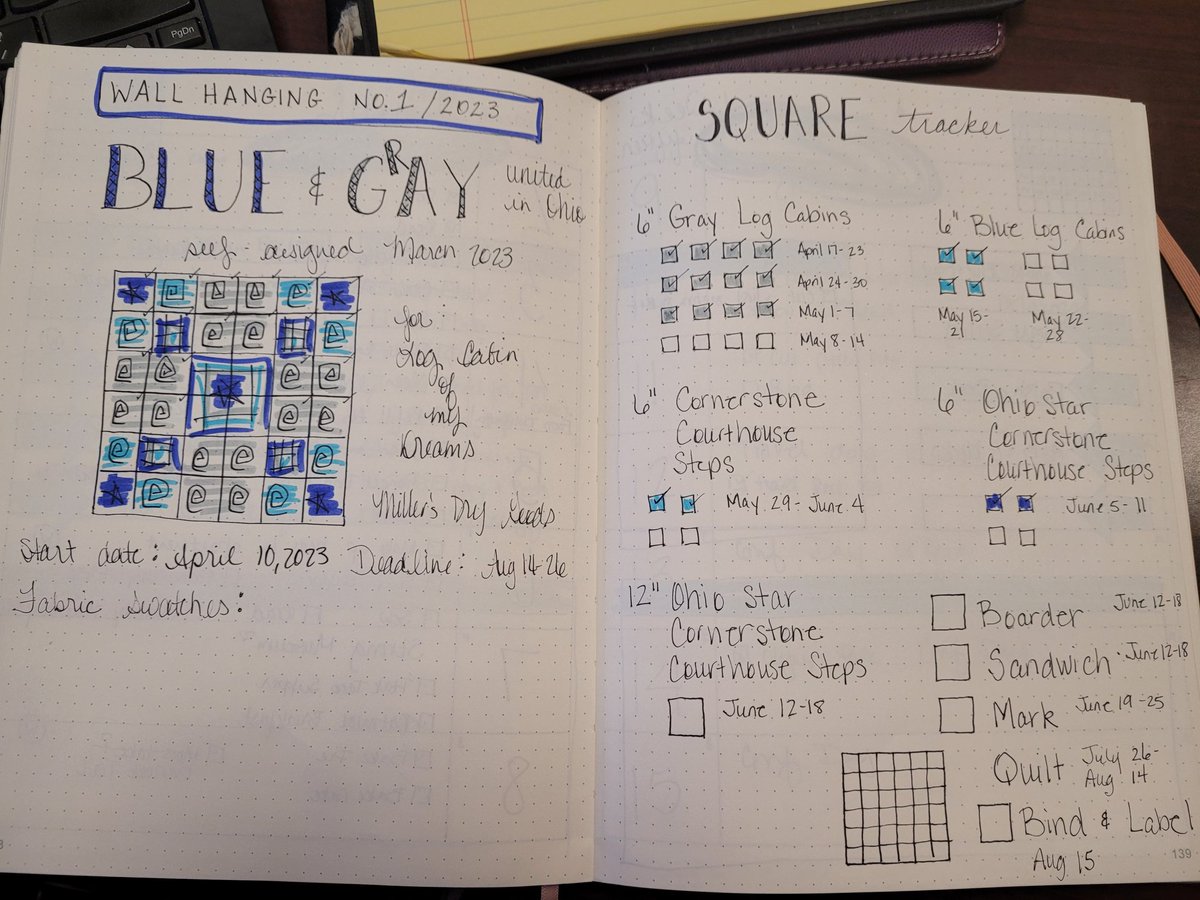 PgDn
WALL HANGING NO.1/2023
BLUE & GRAY united in Ohio
self-designed March 2023
for:
Log Cabin
of
my
Dreams
Miller's Dry Goods
Start date: April 10, 2023 Deadline: Aug 14-26
Fabric Swatches:
SQUARE tracker
6" Gray Log Cabins
April 17-23
April 24-30
May 1-7
May 8-14
6" Blue Log Cabins
May 15-
21
May 22-
28
6" Cornerstone
Courthouse
Steps
May 29-June 4
6" Ohio Star
Cornerstone
Courthouse Steps
June 5-11
12" Ohio Star
Cornerstone
Courthouse Steps
June 12-18
Boarder June 12-18
Sandwich June 12-18
Mark June 19-25
Quilt July 26-
Aug 14
Bind & Label
Aug 15
139